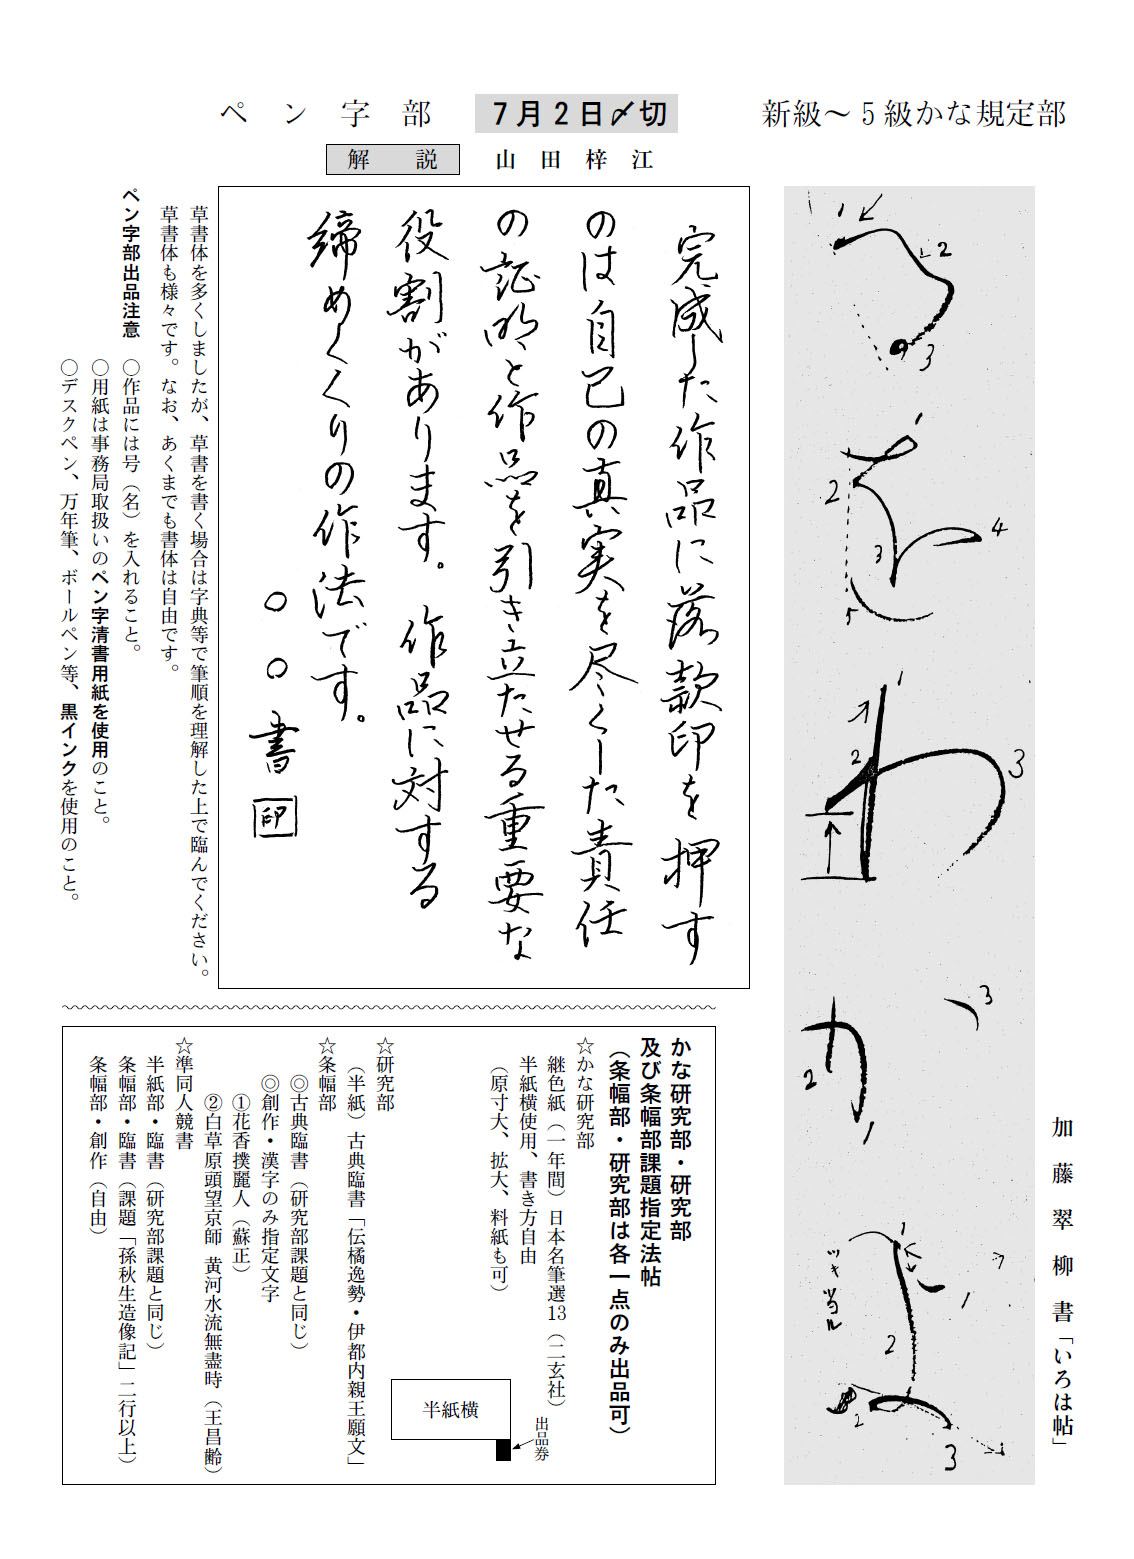 新級～5級かな規定部
7月2日〆切
ペン字部
解説
山田梓江
加藤翠柳書「いろは帖」
る
1
2
3
を
1
2
3
4
5
わ
1
2
3
か
1
2
3
よ
1
2
ツキ当ル
2
3
完成した作品に落款印を押す
のは自己の真実を尽くした責任
の証明と作品を引き立たせる重要な
役割があります。作品に対する
締めくくりの作法です。
○○書 印
草書体を多くしましたが、草書を書く場合は字典等で筆順を理解した上で臨んでください。
草書体も様々です。なお、あくまでも書体は自由です。
ペン字部出品注意 ○作品には号（名）を入れること。
○用紙は事務局取扱いのペン字清書用紙を使用のこと。
○デスクペン、万年筆、ボールペン等、黒インクを使用のこと。
かな研究部・研究部
及び条幅部課題指定法帖
（条幅部・研究部は各一点のみ出品可）
☆かな研究部
継色紙（一年間）日本名筆選13（二玄社）
半紙横使用、書き方自由
（原寸大、拡大、料紙も可）
半紙横
出品券
☆研究部
（半紙）古典臨書「伝橘逸勢・伊都内親王願文」
☆条幅部
◎古典臨書（研究部課題と同じ）
◎創作・漢字のみ指定文字
①花香撲麗人（蘇正）
②白草原頭望京師 黄河水流無盡時（王昌齢）
☆準同人競書
半紙部・臨書（研究部課題と同じ）
条幅部・臨書（課題「孫秋生造像記」二行以上）
条幅部・創作（自由）